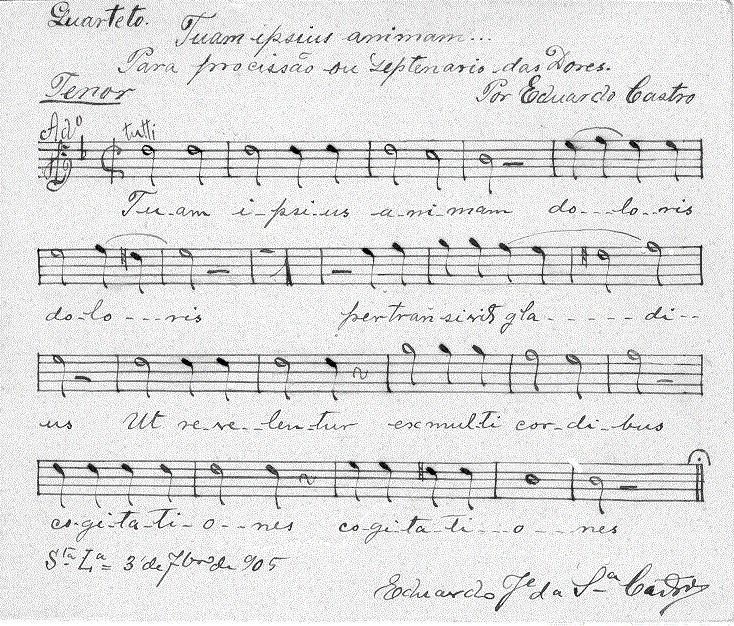 Quarteto.
Tuam ipsius animam...
Para procissão ou Septenario das Dores.
Tenor
Por Eduardo Castro
Adº
tutti
Tu-am i-psi-us a-ni-mam do---lo--ris
do-lo----ris pertransivit gla------di--
us Ut re-ve--len-tur ex multi cor-di-bus
co-gi-ta-ti-o--nes co-gi-ta-ti---o---nes
Sta. La. 3 de 7bro de 905
Eduardo Je. da Sa.